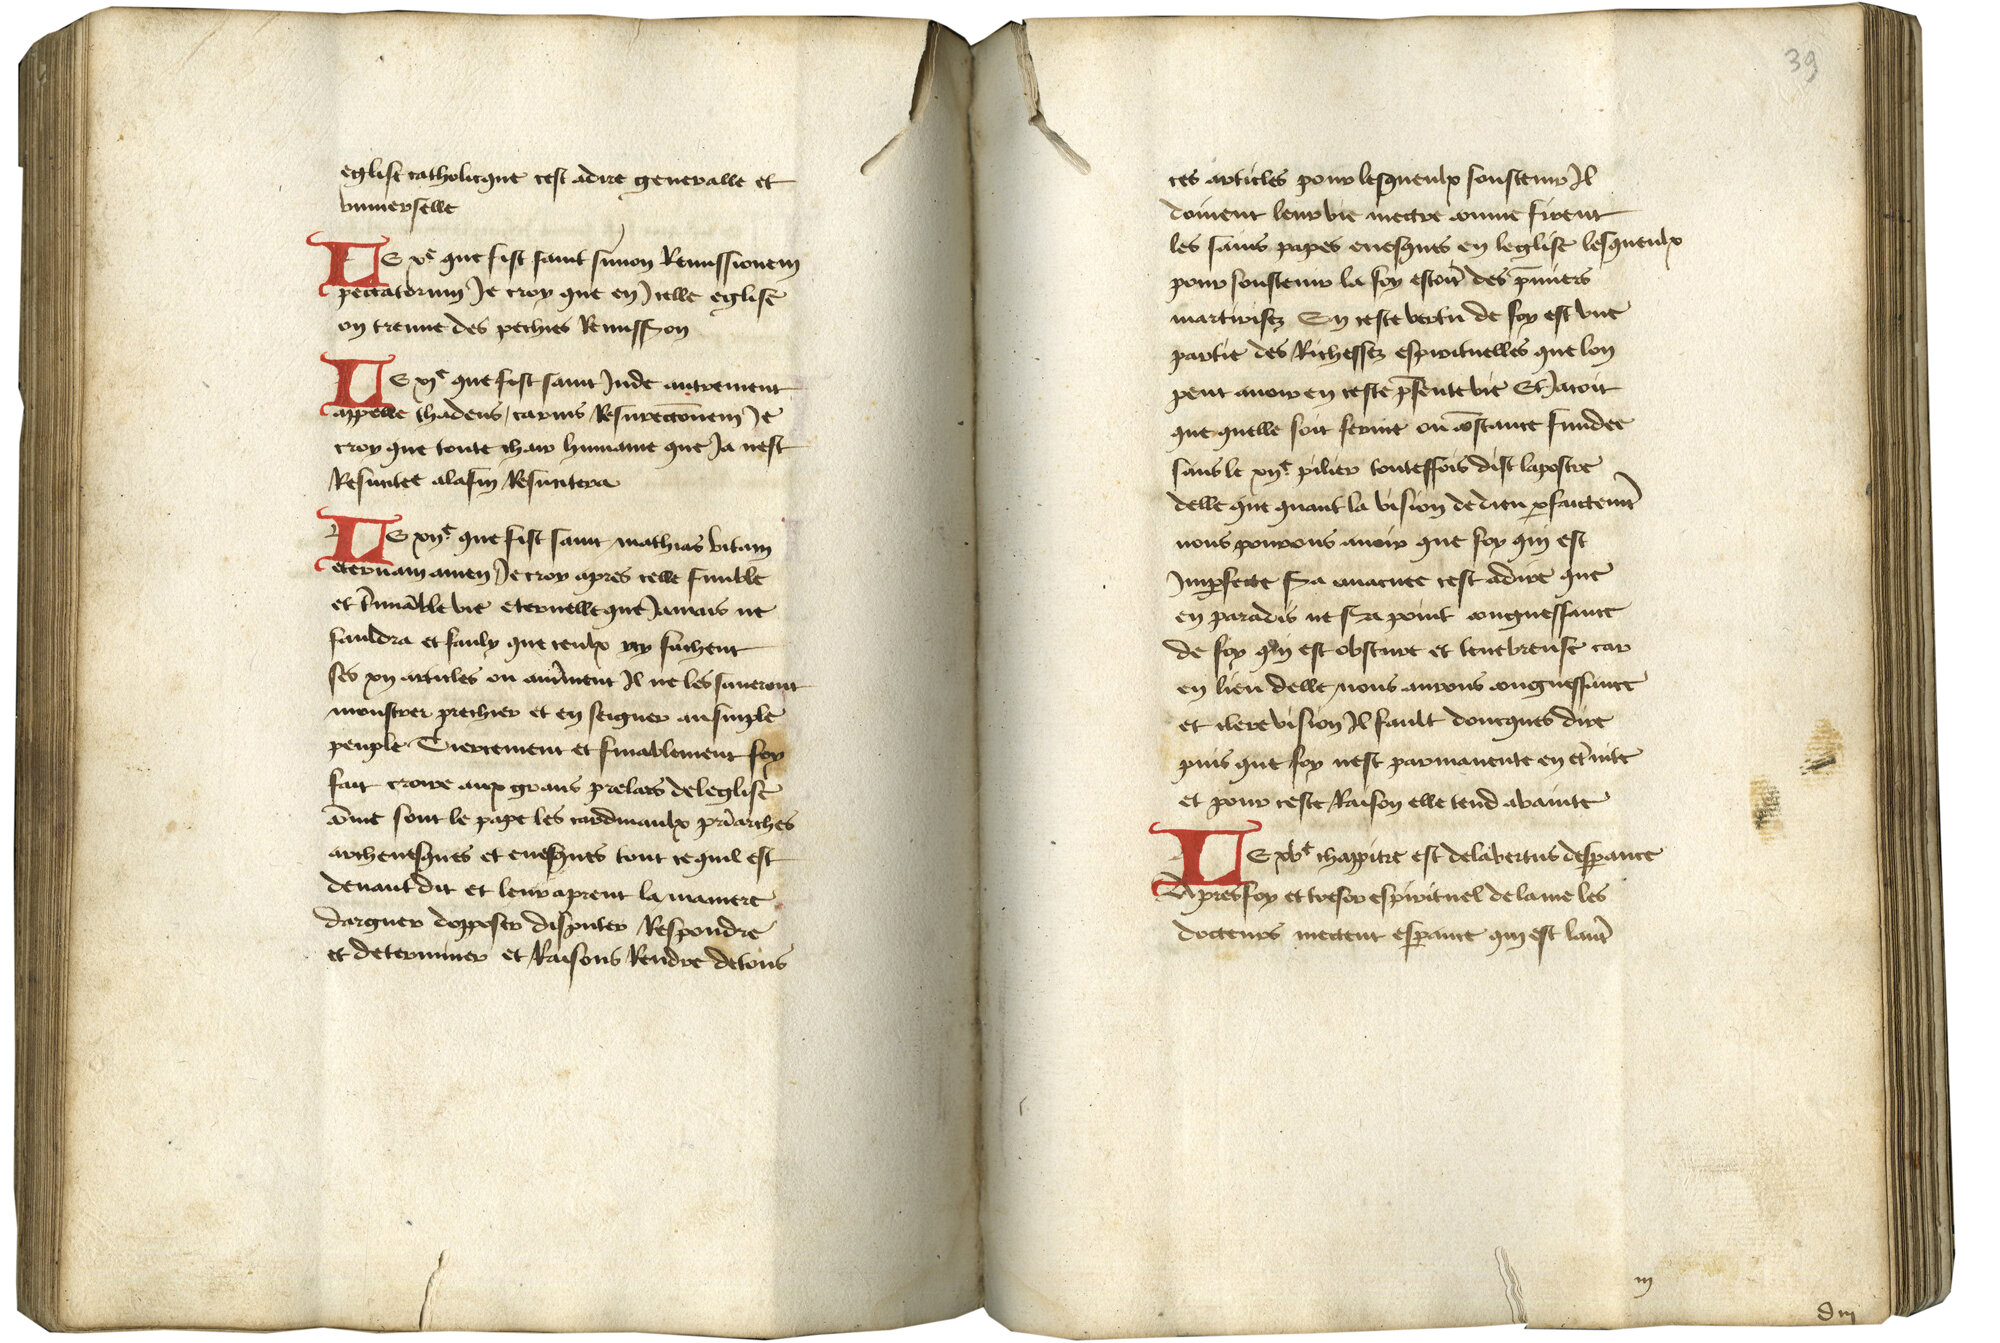 eglise catholicque cest adire generalle et
vniuerselle
LE xe que fist saint simon Remissionem
peccatorum Je croy que en Jcelle eglise
on treuue des pechies Remission
LE xje que fist saint Jude autrement
appelle thadeus / carnis Resurectionem Je
croy que toute chair humaine que Ja nest
Resuscitee alafin Resucitera
LE xije que fist saint mathias vitam
eternam amen Je croy apres celle
et vie eternelle que Jamais ne
fauldra et que ceulx sachent
ses xij articles ou autrement Il ne les saueront
monstrer prechier et en seigner au simple
peuple Tiercement et finablement foy
fait croire aux grans prelats de leglise
comme sont le pape les cardinaulx priarches
archeuesques et euesques tout ce quil est
deuant dit et leur aprent la maniere
darguer dopposer disputer Respondre
et determiner et Raisons Rendre de tous
39
ces articles pour lesqueulx soustenir Il
doiuent leur vie mectre comme firent
les sains papes euesques en leglise lesqueulx
pour soustenir la foy estoient des premiers
martirisez En ceste vertu de foy est vne
partie des Richessez espirituelles que lon
peut auoir en ceste presente vie Et Jacoit
que quelle soit ferme ou constance fundee
sans le xije pilier touteffois dist lapostre
delle que quant la vision de dieu parfaictement
nous pourons auoir que foy qui est
Jmperfecte sera euacuee cest adire que
en paradis ne sera point congnessance
de foy qui est obscure et tenebreuse car
en lieu delle nous aurons congnessance
et clere vision Il fault doncques dire
puis que foy nest parmanente en eternite
et pour ceste Raison elle tend a
LE xve chappitre est de la vertus desperance
Apres foy et tresor espirituel de lame les
docteurs mectent esperance qui est lautre
iij
d iij